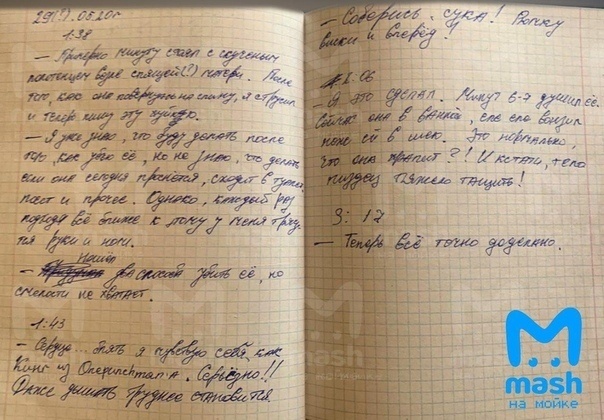 29(?).06.20г
1:38
— Примерно минуту стоял с скученым
полотенцем возле спящей(?) матери. После
того, как она повернулась на спину, я струсил
и теперь пишу эту
— Я уже знаю, что буду делать после
того, как убью её, но не знаю, что делать
если она сегодня проснётся, сходит в туалет,
поест и прочее. Однако, каждый раз
подходя всё ближе к этому у меня трясу-
тся руки и ноги.
— Нашёл два способа убить её, но
смелости не хватает.
1:43
— Сердце... блять я чувствую себя, как
Кинг из Onepunchman'а. Серьёзно!!
Даже дышать труднее становится.
— Соберись, сука! Рюмку
виски и вперёд!
— Я это сделал. Минут 5-7 душил её.
Сейчас она в ванной, еле еле вонзил
нож ей в шею. Это нормально,
что она храпит?! И кстати, тело
пиздец тяжело тащить!
3:17
— Теперь всё точно доделано.
mash
на мойке